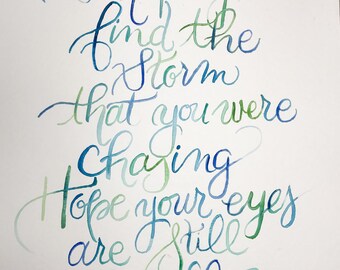 find the
storm
that you were
chasing
Hope your eyes
are still